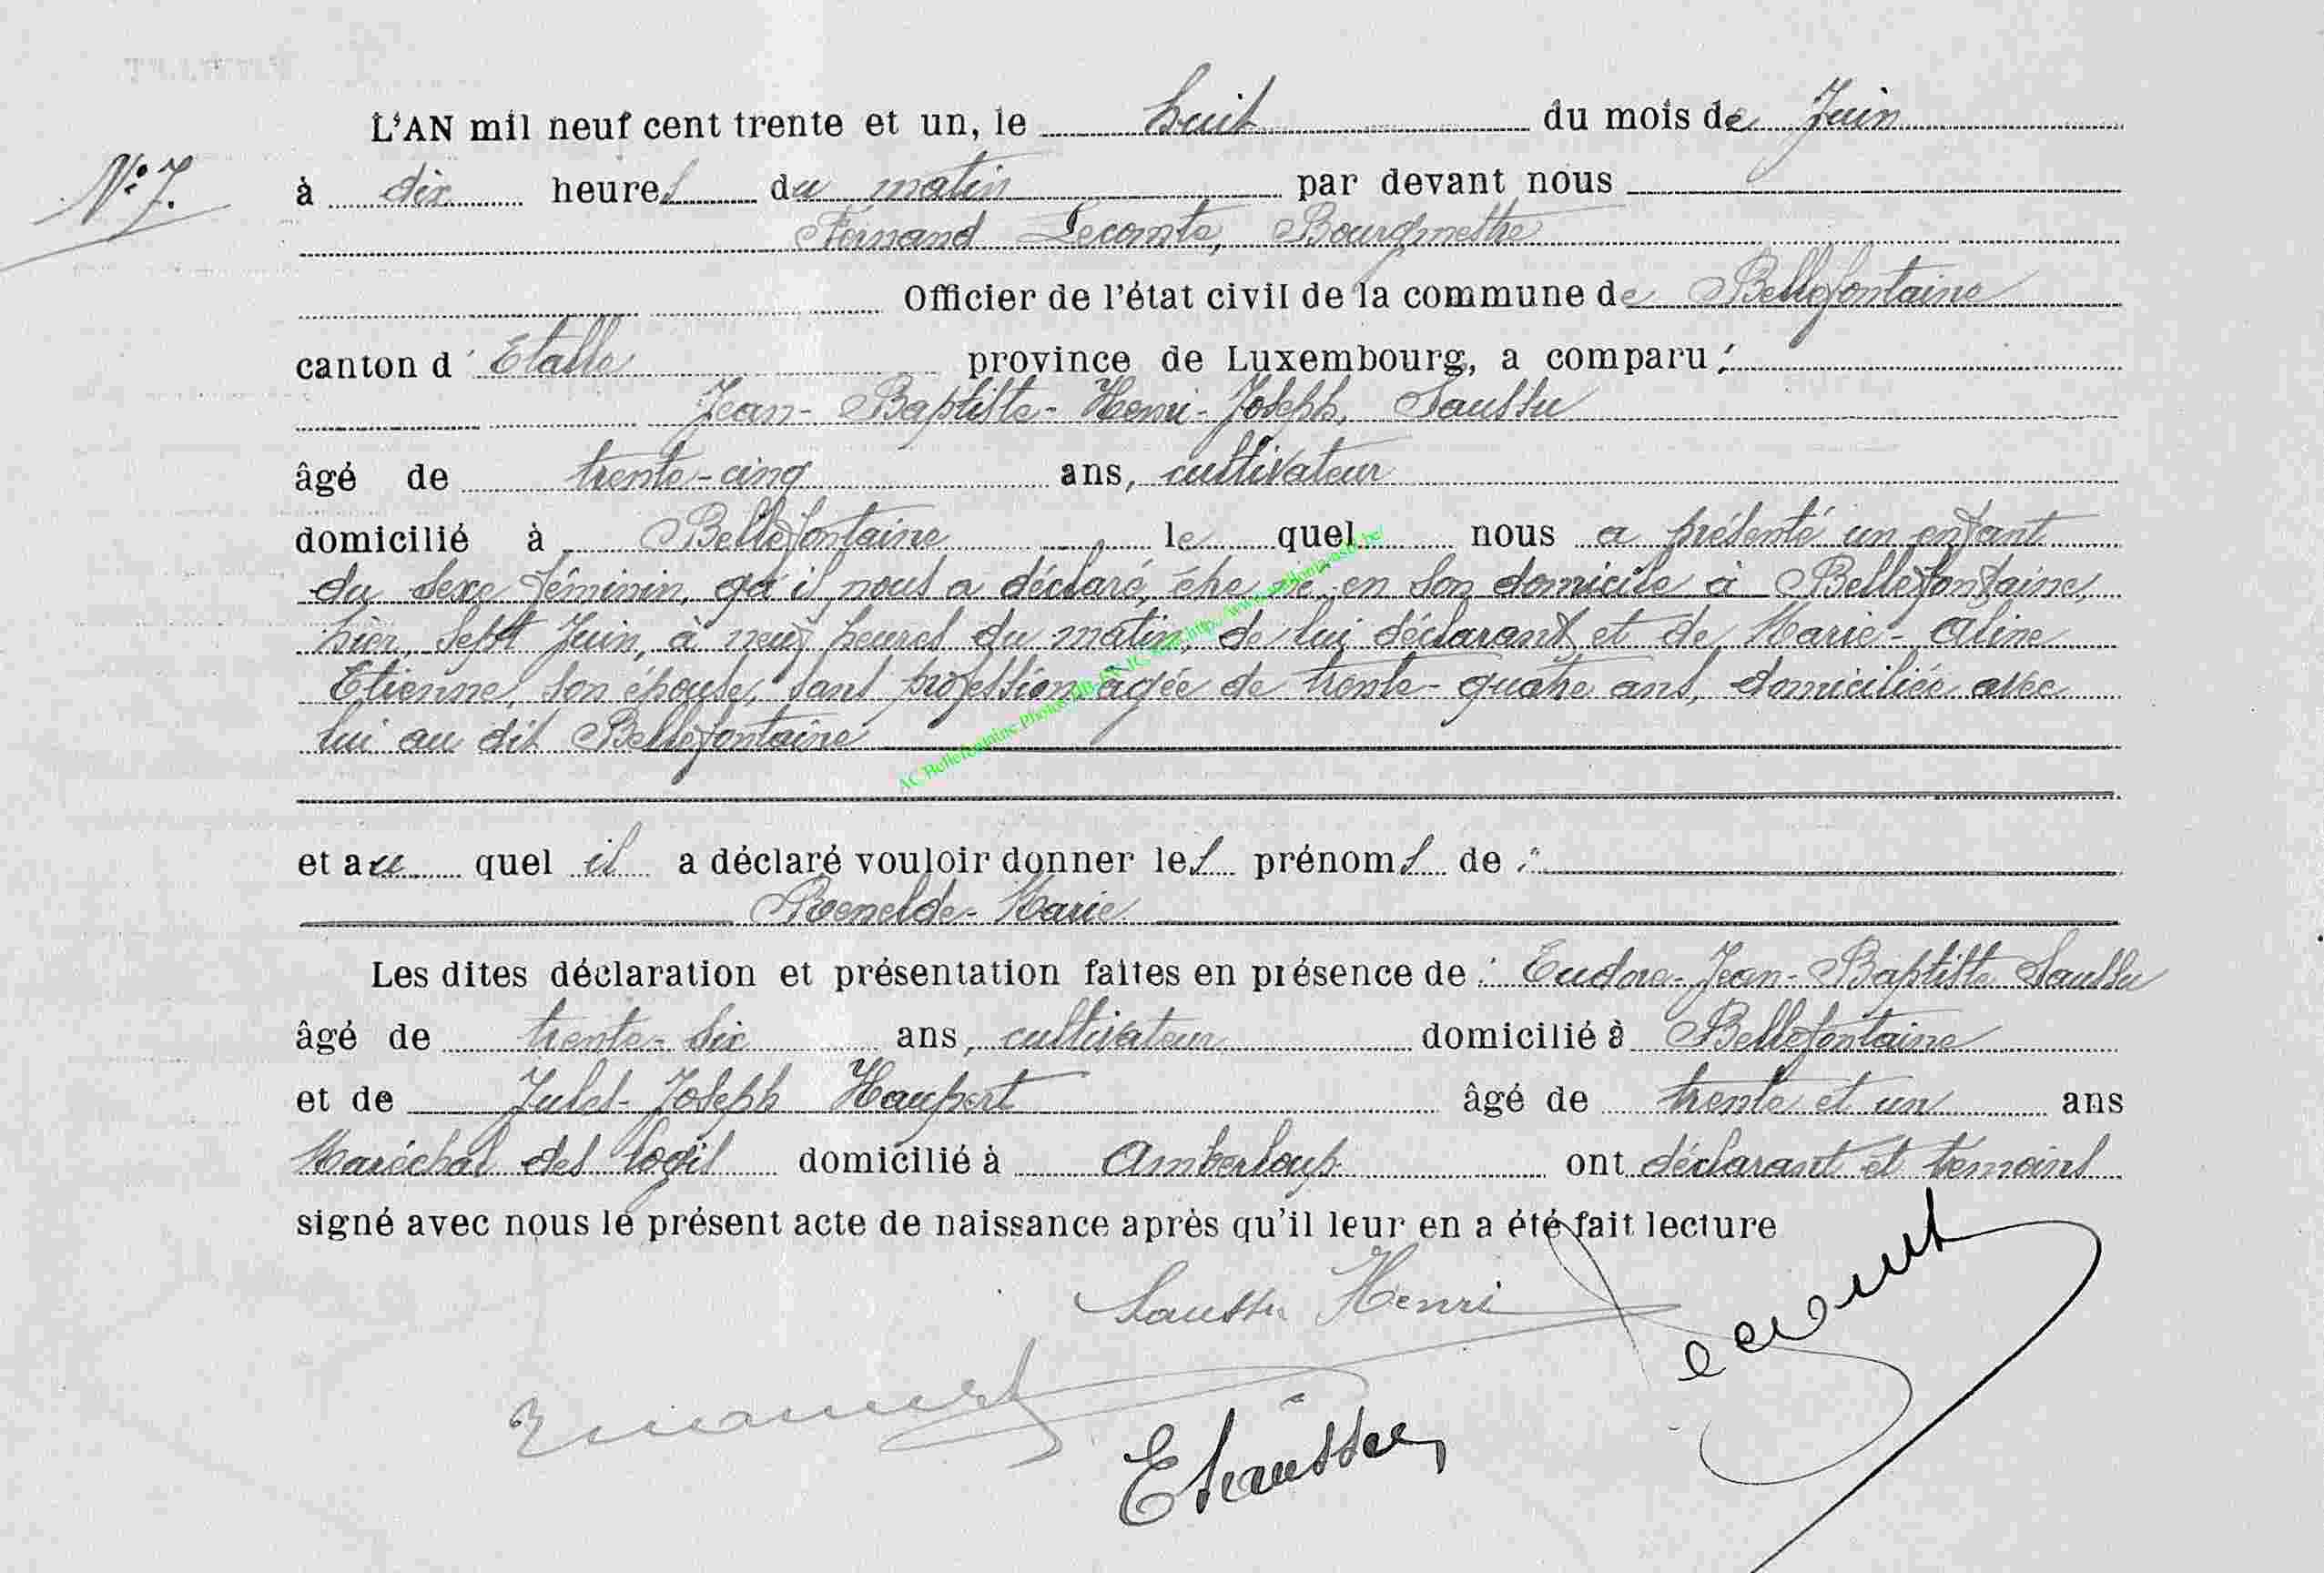 L'AN mil neuf cent trente et un, le huit du mois de Juin
N° 7.
à dix heures du matin par devant nous
Fernand Lecomte, Bourgmestre
Officier de l'état civil de la commune de Bellefontaine
canton d'Etalle province de Luxembourg, a comparu :
Jean-Baptiste-Henri-Joseph, Saussu
âgé de trente-cinq ans, cultivateur
domicilié à Bellefontaine le quel nous a présenté un enfant
du sexe féminin, qu'il nous a déclaré, être né en son domicile à Bellefontaine,
hier, sept Juin, à neuf heures du matin, de lui déclarant et de Marie-Aline
Etienne, son épouse, sans profession, agée de trente-quatre ans, domiciliée avec
lui au dit Bellefontaine
et au quel il a déclaré vouloir donner les prénoms de :
Renelde-Marie
Les dites déclaration et présentation faites en présence de : Eudore-Jean-Baptiste Saussu
âgé de trente-six ans, cultivateur domicilié à Bellefontaine
et de Jules-Joseph Haupert âgé de trente et un ans
Maréchal des logis domicilié à Amberloup ont déclarant et témoins
signé avec nous le présent acte de naissance après qu'il leur en a été fait lecture
Saussu Henri
E Saussu
AC Bellefontaine Photos